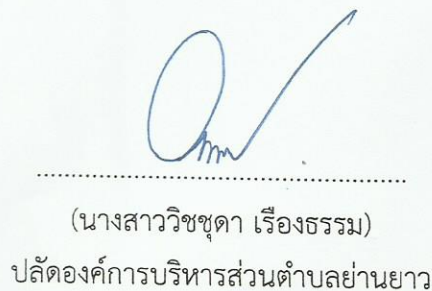 (นางสาววิชชุดา เรืองธรรม)
ปลัดองค์การบริหารส่วนตำบลย่านยาว